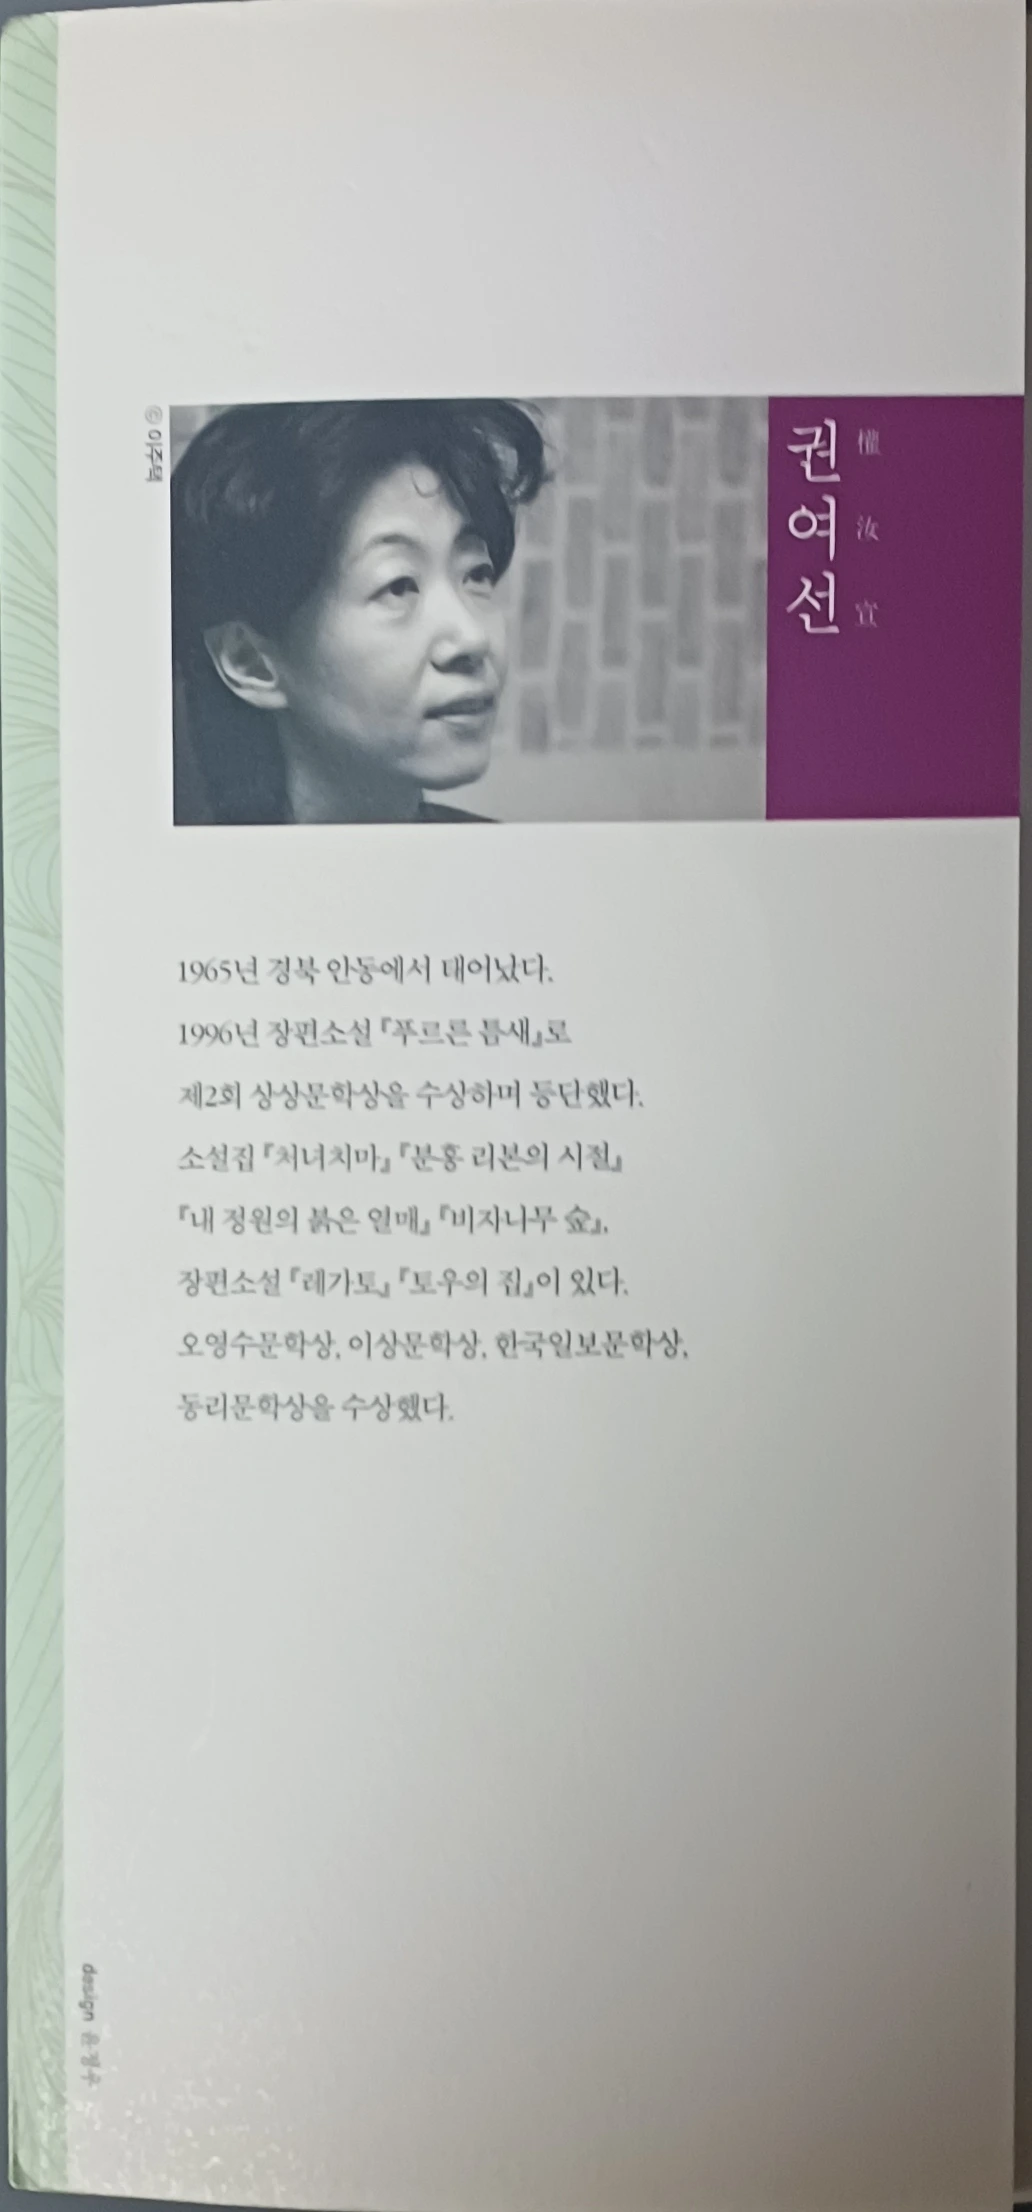 ⓒ 이주벽
권여선
權汝宣
1965년 경북 안동에서 태어났다.
1996년 장편소설 『푸르른 틈새』로
제2회 상상문학상을 수상하며 등단했다.
소설집 『처녀치마』 『분홍 리본의 시절』
『내 정원의 붉은 열매』 『비자나무 숲』,
장편소설 『레가토』 『토우의 집』이 있다.
오영수문학상, 이상문학상, 한국일보문학상,
동리문학상을 수상했다.
design 윤정우